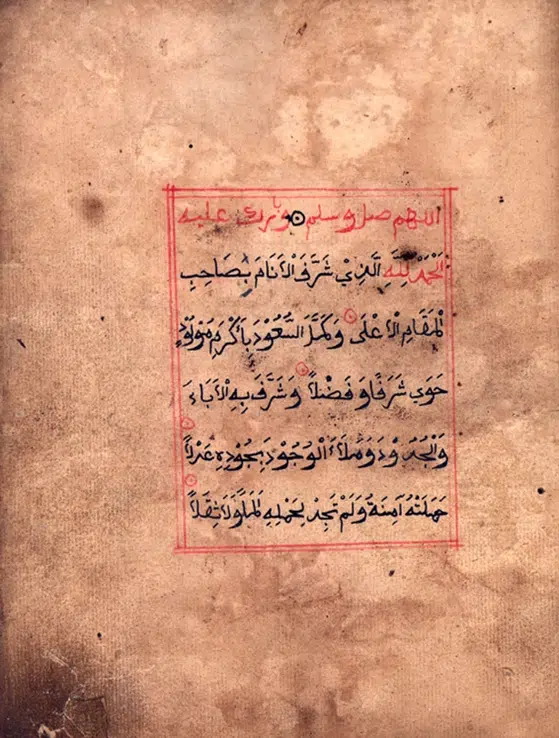 اللهم صل وسلم وبارك عليه
اَلْحَمْدُ لِلّٰهِ الَّذِيْ شَرَّفَ الْاَنَامَ بِصَاحِبِ
الْمَقَامِ الْاَعْلَى وَكَمَّلَ السُّعُوْدَ بِاَكْرَمِ مَوْلُوْدٍ
حَوَى شَرَفًا وَفَضْلًا وَشَرَّفَ بِهِ الْاَبَاءَ
وَالْجُدُوْدَ وَمَلَاَءَ الْوُجُوْدَ بِجُوْدِهِ عَدْلًا
حَمَلَتْهُ اٰمِنَةُ وَلَمْ تَجِدْ لِحَمْلِهِ اَلَمًا وَلَا ثِقَلًا